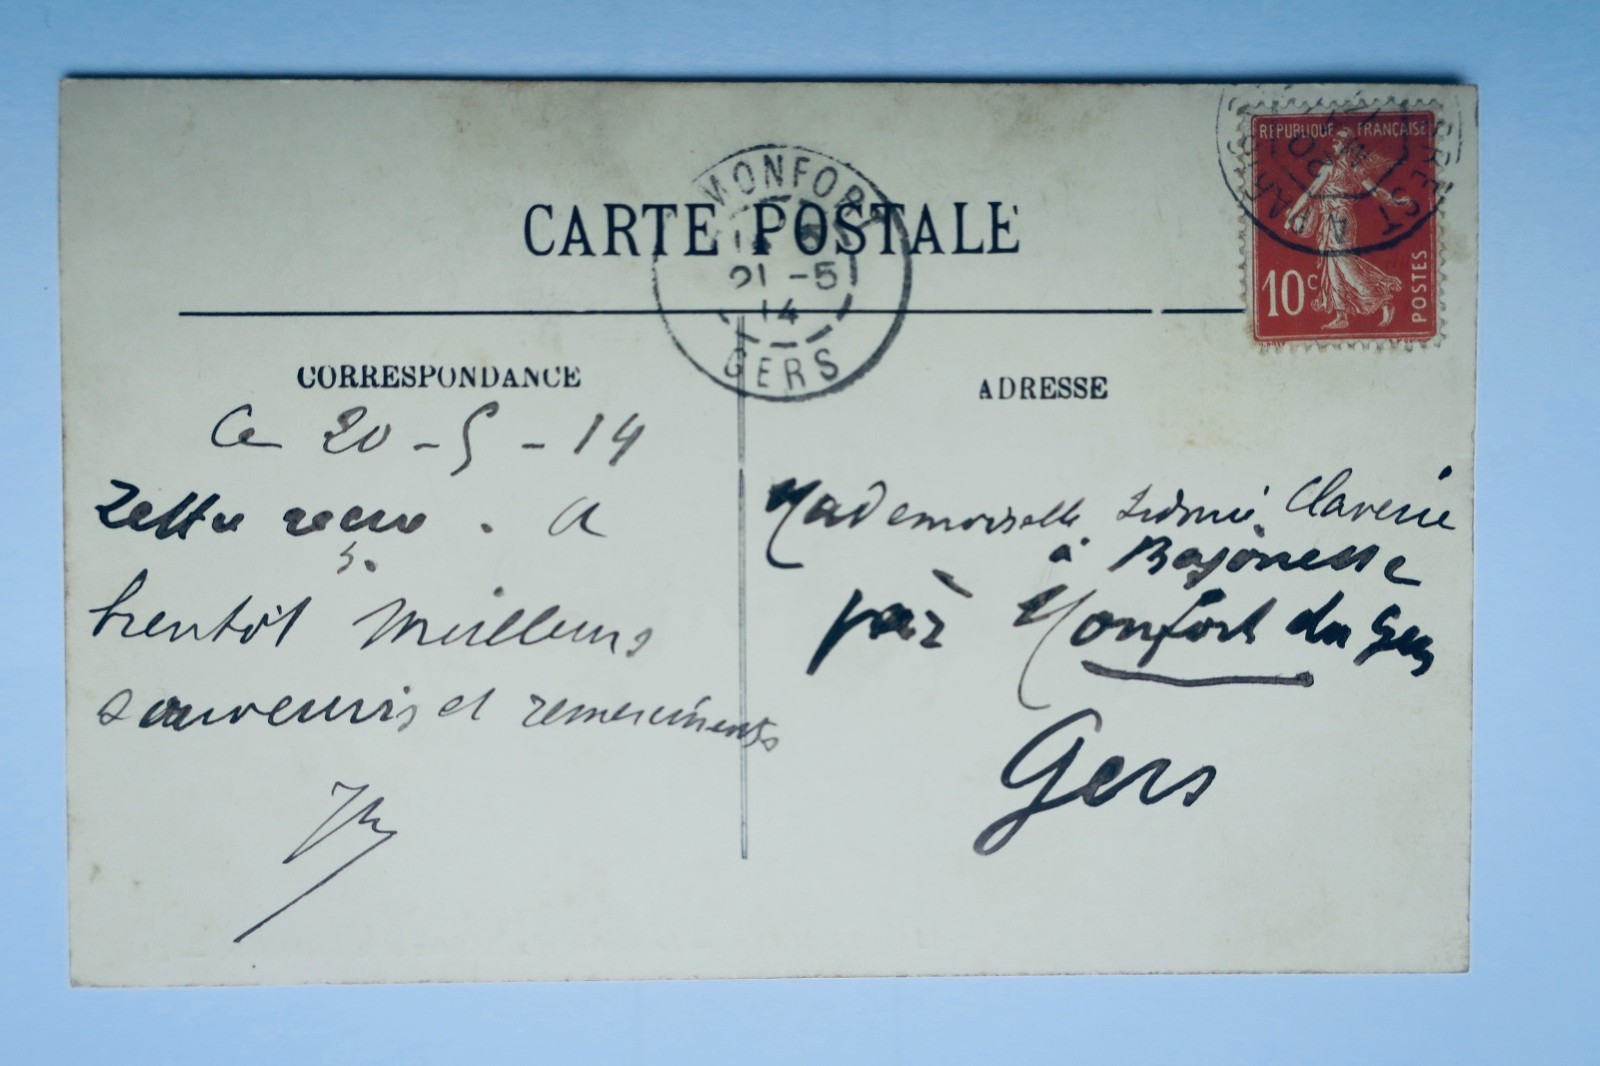 CARTE POSTALE
MONFORT
21 -5
14
GERS
REPUBLIQUE FRANÇAISE
10c
POSTES
BREST A PARIS
CORRESPONDANCE
Ce 20-5-14
reçu. A
bientôt Meilleurs
souvenirs et remerciments
ADRESSE
Mademoiselle Claverie
à
par Monfort du Gers
Gers